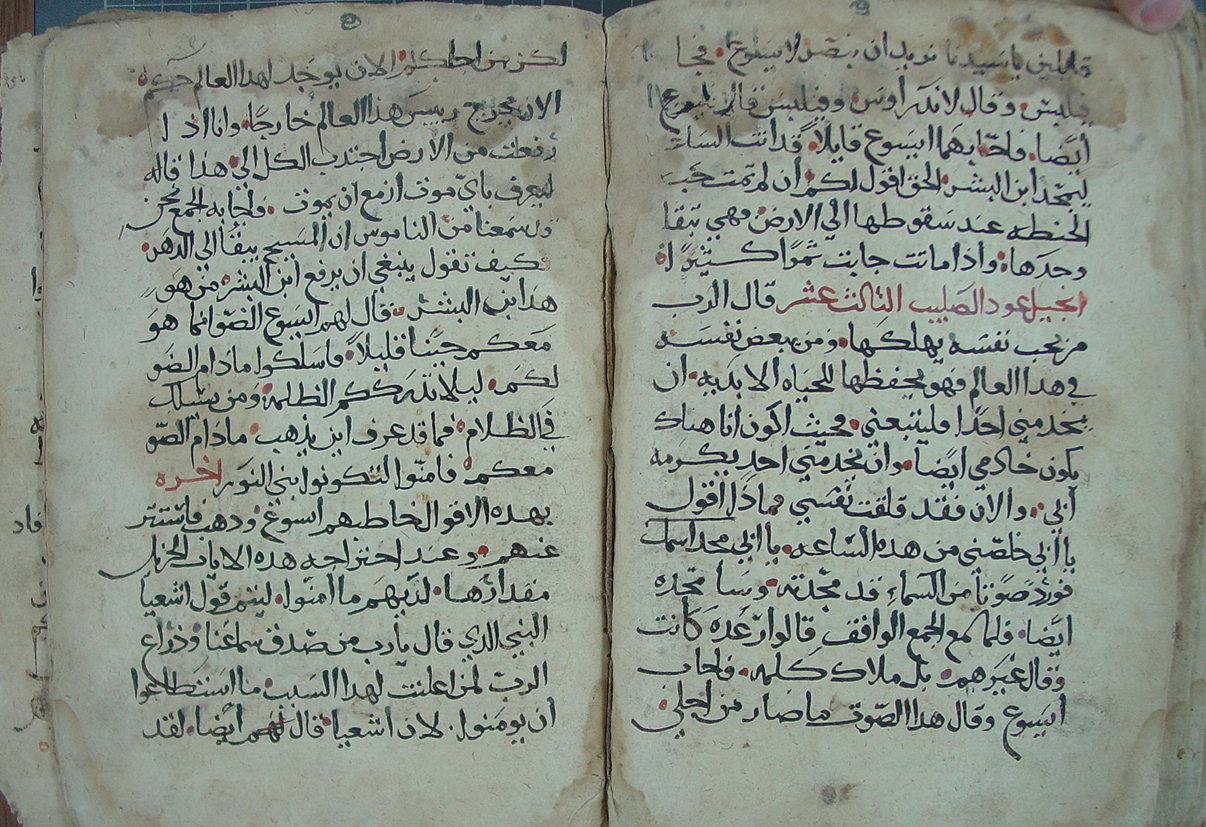 قايلين ياسيدنا نريد ان نبصر لايسوع فجا
فيلبس وقال لاندراوس وفيلبس قالا ليسوع
ايضا فاجابهما ايسوع قايلا قد اتت الساعه
ليتمجد ابن البشر الحق اقول لكم ان لم تمت حبه
الحنطه عند سقوطها الي الارض فهي تبقا
وحدها واذا ماتت جابت ثمرا كثيرا
انجيل عود الصليب الثالث عشر قال الرب
من يحب نفسه يهلكها ومن يبغض نفسه
في هدا العالم فهو يحفظها للحياه الابديه ان
يخدمني احدا فليتبعني فحيث اكون انا هناك
يكون خادمي ايضا وان يخدمني احد يكرمه
ابي والان فقد قلقت نفسي فماذا اقول
يا ابي خلصني من هده الساعه يا ابي مجد اسمك
فورد صوتا من السماء قد مجدته وسامجده
ايضا فلما سمع الجمع الواقف قالوا رعده كانت
وقال غيرهم بل ملاك كلمه فاجاب
ايسوع وقال هدا الصوت ما صار من اجلي
لكن من اجلكم الان يوجد لهدا العالم حكم
الان يخرج رييس هدا العالم خارجا وانا اذا
رفعت من الارض اجتدب الكل الي هدا قاله
ليعرف باي موت ازمع ان يموت فاجابه الجمع نحن
سمعنا من الناموس ان المسيح يبقا الي الدهر
فكيف تقول ينبغي ان يرفع ابن البشر من هو
هدا ابن البشر فقال لهم ايسوع الضو انما هو
معكم حينا قليلا فاسلكوا مادام الضو
لكم ليلا تدرككم الظلمه ومن يسلك
في الظلام فما قد عرف اين يذهب مادام الضو
معكم فامنوا لتكونوا بني النور اخره
بهده الاقوال خاطبهم ايسوع ودهب فاستتر
عنهم وعند اجتراحه هده الايات الجزيل
مقدارها لديهم ما امنوا ليتم قول اشعيا
النبي الذي قال يارب من صدق سماعنا وذراع
الرب لمن اعلنت لهدا السبب ما استطاعوا
ان يومنوا لان اشعيا قال لهم ايضا لقد